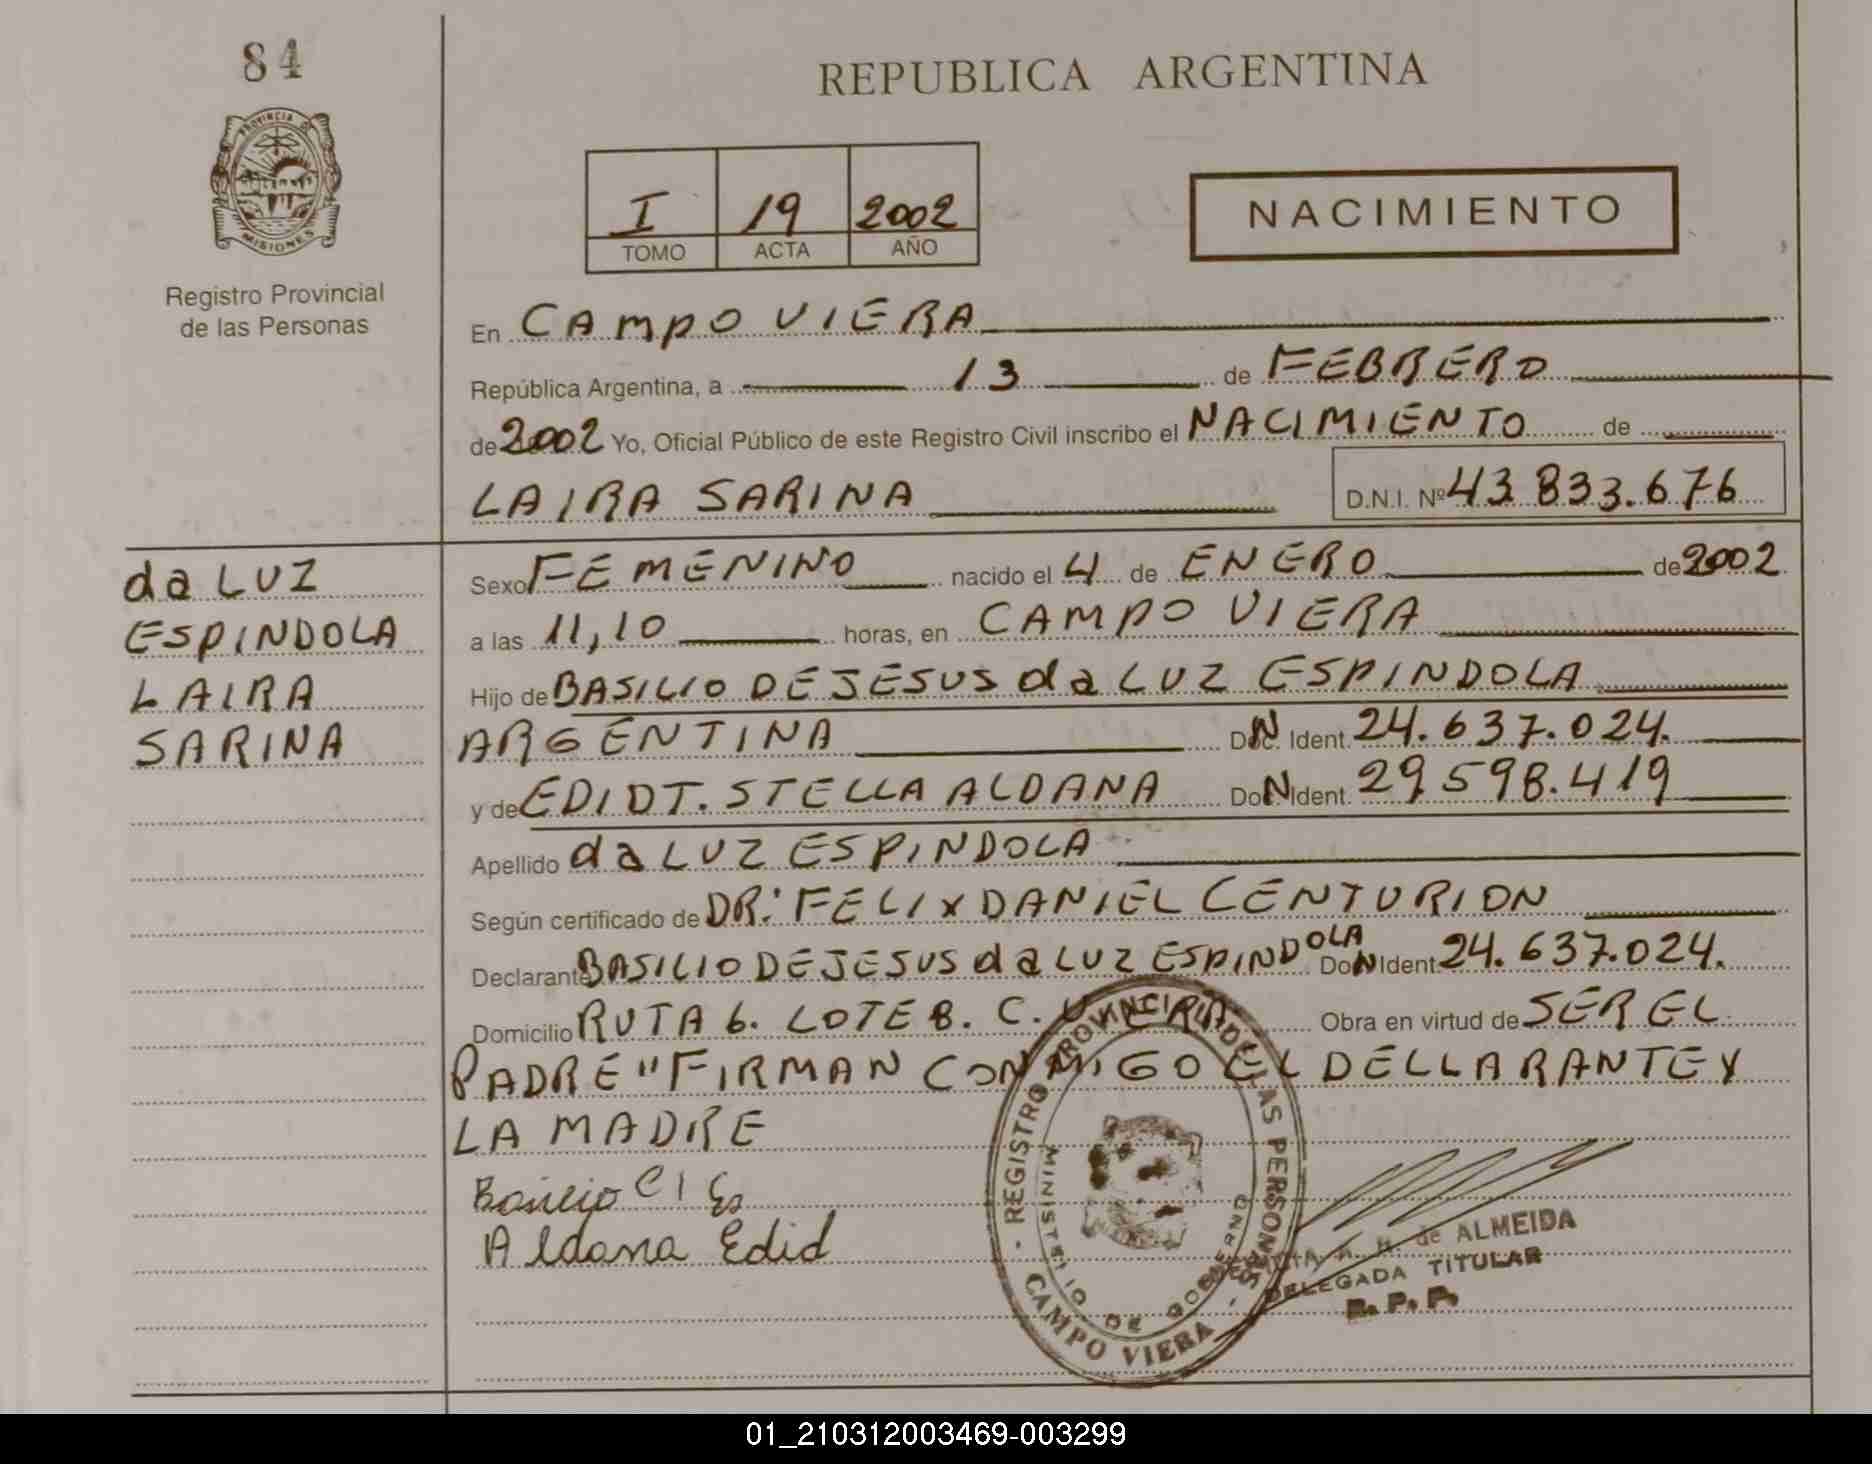 84
REPUBLICA ARGENTINA
PROVINCIA DE
MISIONES
Registro Provincial
de las Personas
I 19 2002
TOMO ACTA AÑO
NACIMIENTO
En CAMPO VIERA
República Argentina, a 13 de FEBRERO
de 2002 Yo, Oficial Público de este Registro Civil inscribo el NACIMIENTO de
LAIRA SARINA D.N.I. Nº 43.833.676
da LUZ
ESPINDOLA
LAIRA
SARINA
Sexo FEMENINO nacido el 4 de ENERO de 2002
a las 11,10 horas, en CAMPO VIERA
Hijo de BASILIO DE JESUS da LUZ ESPINDOLA
ARGENTINA Doc. N Ident. 24.637.024.
y de EDIDT. STELLA ALDANA Doc. N Ident. 29.598.419
Apellido da LUZ ESPINDOLA
Según certificado de DR: FELIX DANIEL CENTURION
Declarante BASILIO DE JESUS da LUZ ESPINDOLA Doc. N Ident. 24.637.024.
Domicilio RUTA 6. LOTE 8. C. VIERA Obra en virtud de SER EL
PADRE "FIRMAN CONMIGO EL DELLARANTE Y
LA MADRE
Aldana Edid
- REGISTRO PROVINCIAL DE LAS PERSONAS -
MINISTERIO DE GOBIERNO
CAMPO VIERA
de ALMEIDA
DELEGADA TITULAR
R. P. P.
01_210312003469-003299